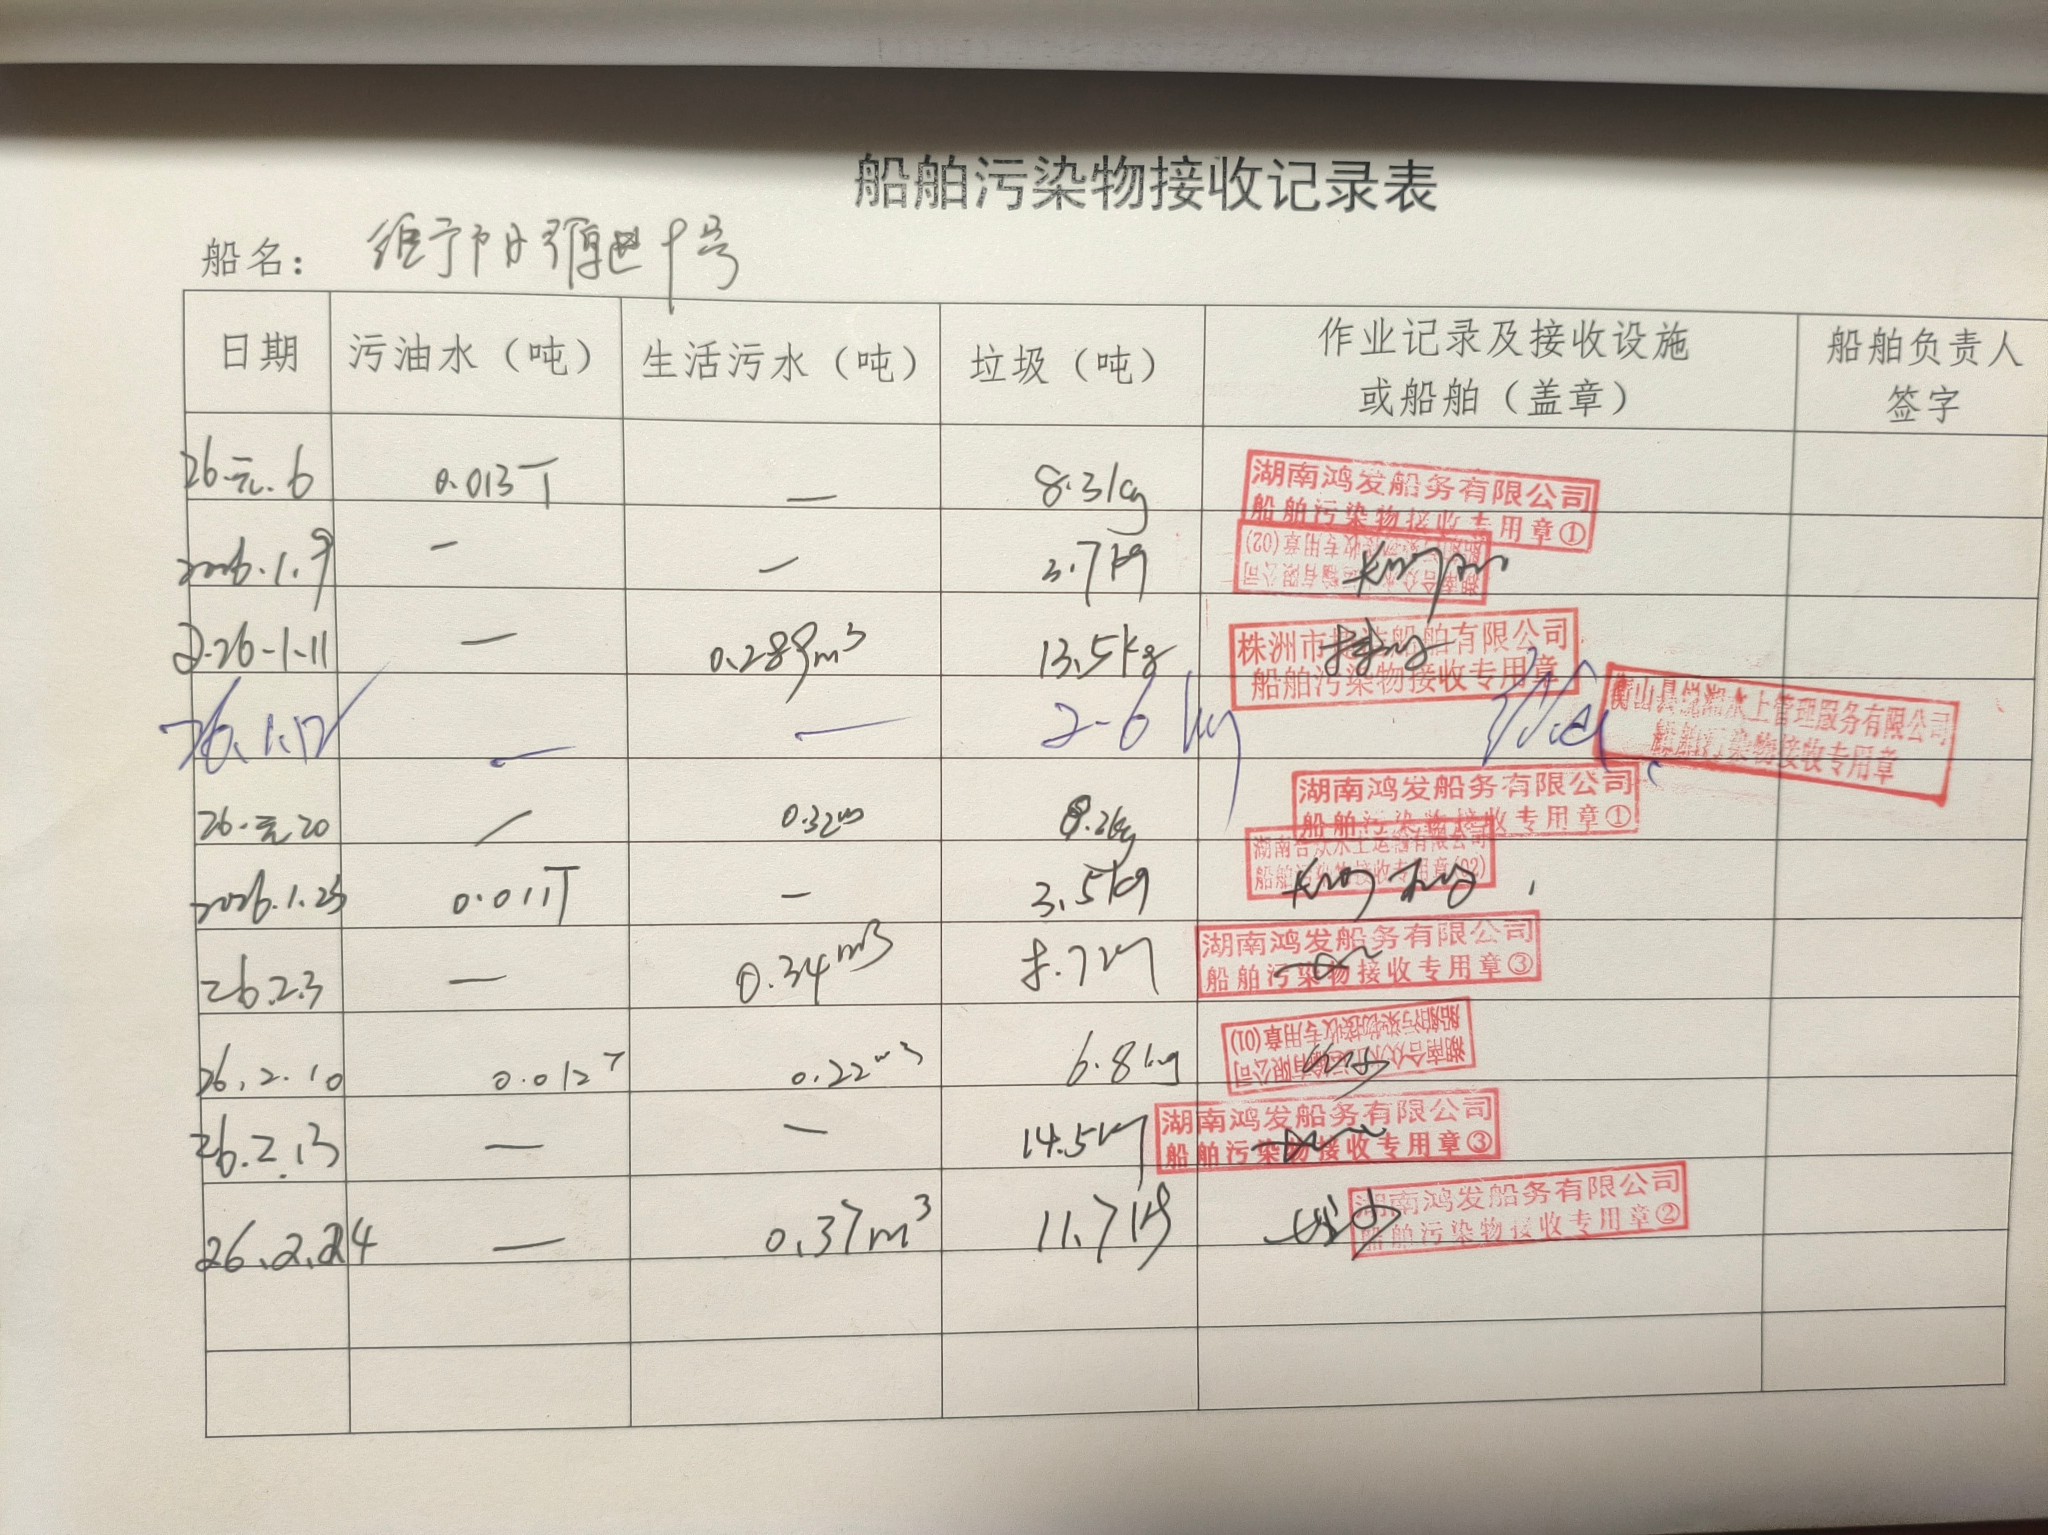 船舶污染物接收记录表
船名： 号
日期 污油水（吨） 生活污水（吨） 垃圾（吨） 作业记录及接收设施或船舶（盖章） 船舶负责人签字
26.元.6 0.013T — 8.3kg 湖南鸿发船务有限公司 船舶污染物接收专用章①
2026.1.9 — — 3.7kg 湖南合众水上运输有限公司 船舶污染物接收专用章(02)
2026-1-11 — 0.289m3 13.5kg 株洲市 船舶有限公司 船舶污染物接收专用章
26.1.12 — — 2-6kg 衡山县 水上管理服务有限公司 船舶污染物接收专用章
26.元20 / 0.32m 8.2kg 湖南鸿发船务有限公司 船舶污染物接收专用章①
2026.1.25 0.011T — 3.5kg 湖南合众水上运输有限公司 船舶污染物接收专用章(02)
26.2.3 — 0.34m3 湖南鸿发船务有限公司 船舶污染物接收专用章③
26.2.10 0.012T 0.22m3 6.8kg 湖南合众水上运输有限公司 船舶污染物接收专用章(01)
26.2.13 — — 14.5kg 湖南鸿发船务有限公司 船舶污染物接收专用章③
26.2.24 — 0.37m3 11.7kg 湖南鸿发船务有限公司 船舶污染物接收专用章②